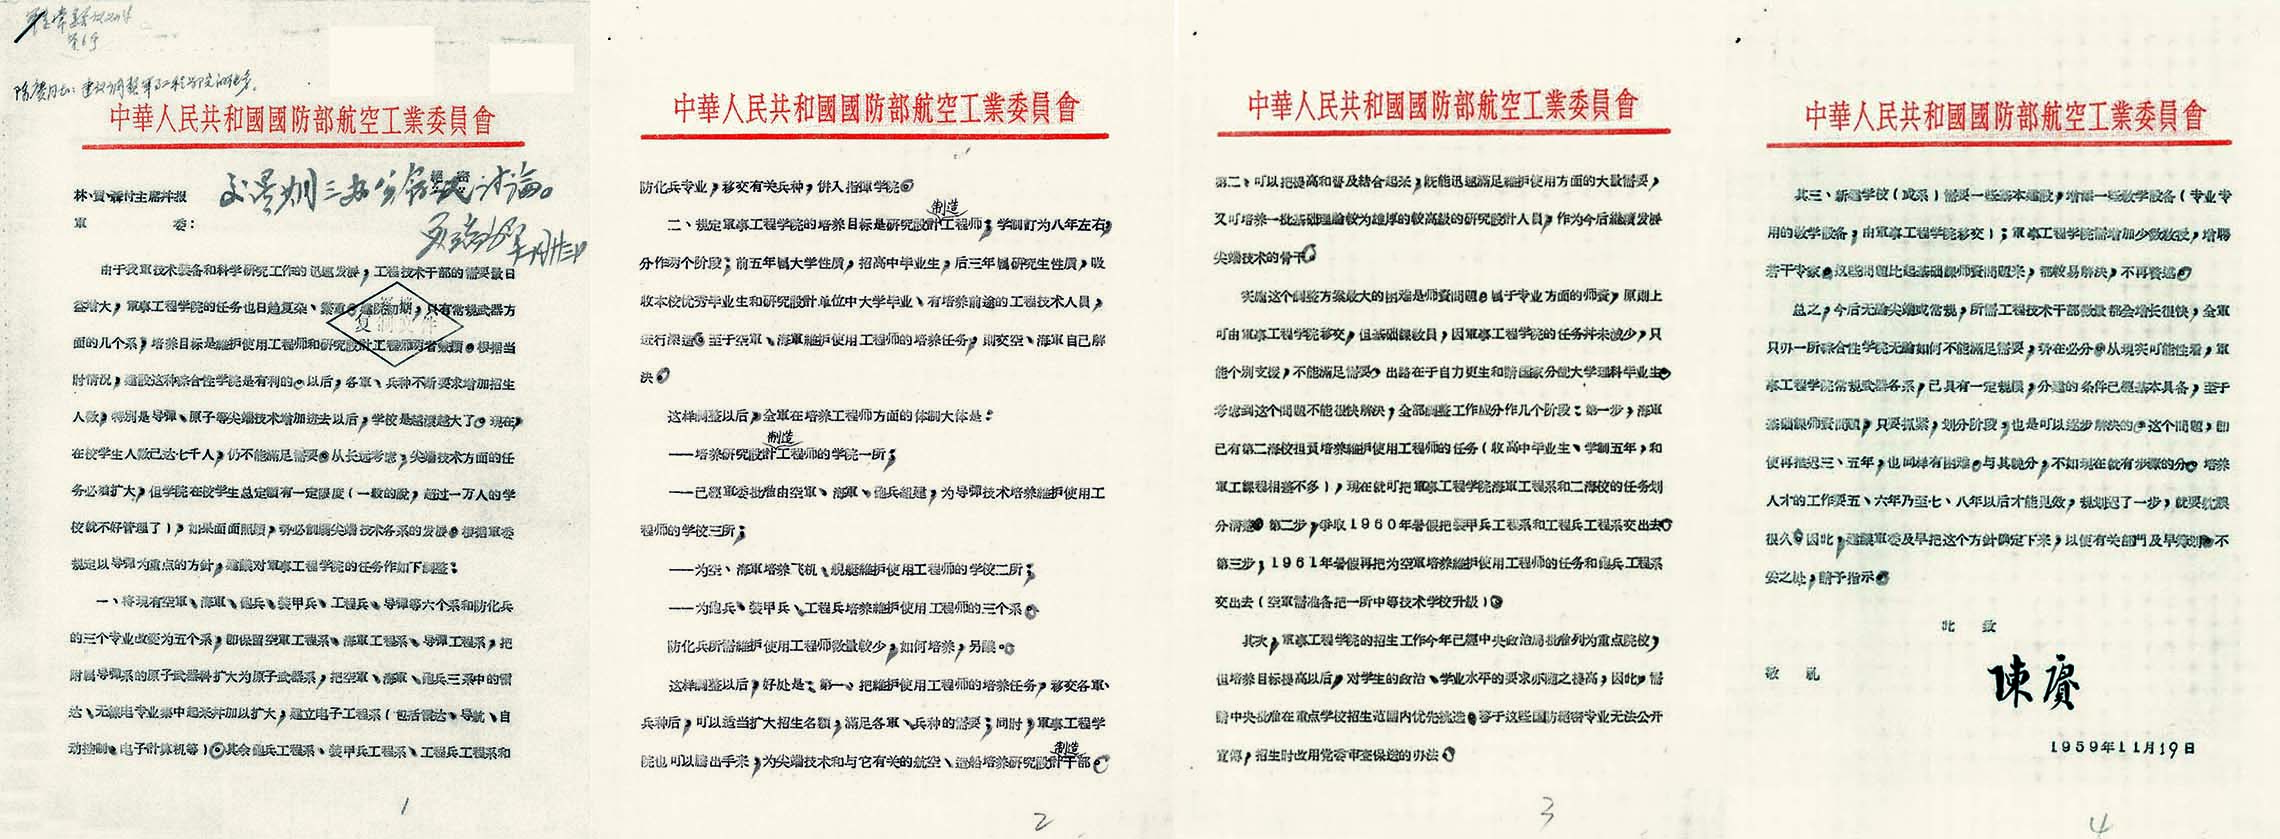 陈赓同志：建议调整军事工程学院的任务。
中華人民共和國國防部航空工業委員會
林、賀、聶付主席幷报
軍 委：
由于我軍技术装备和科学研究工作的迅速发展，工程技术干部的需要量日
益增大，軍事工程学院的任务也日趋复杂、繁重。建院初期，只有常規武器方
面的几个系，培养目标是維护使用工程师和研究設計工程师两者兼顧。根据当
时情况，建設这种綜合性学院是有利的。以后，各軍、兵种不断要求增加招生
人数，特别是导弹、原子等尖端技术增加进去以后，学校是越滚越大了。现在，
在校学生人数已达七千人，仍不能滿足需要。从长远考慮，尖端技术方面的任
务必須扩大，但学院在校学生总定額有一定限度（一般的說，超过一万人的学
校就不好管理了），如果面面照顧，势必削弱尖端技术各系的发展。根据軍委
規定以导弹为重点的方針，建議对軍事工程学院的任务作如下調整：
一、将現有空軍、海軍、炮兵、装甲兵、工程兵、导弹等六个系和防化兵
的三个专业改变为五个系，即保留空軍工程系、海軍工程系、导弹工程系，把
附属导弹系的原子武器科扩大为原子武器系，把空軍、海軍、炮兵三系中的雷
达、无綫电专业集中起来幷加以扩大，建立电子工程系（包括雷达、导航、自
动控制、电子計算机等）。其余炮兵工程系、装甲兵工程系、工程兵工程系和
1
中華人民共和國國防部航空工業委員會
防化兵专业，移交有关兵种，併入指揮学院。
制造
二、規定軍事工程学院的培养目标是研究設計工程师；学制訂为八年左右，
分作两个阶段；前五年属大学性质，招高中毕业生，后三年属研究生性质，吸
收本校优秀毕业生和研究設計单位中大学毕业、有培养前途的工程技术人員，
进行深造。至于空軍、海軍維护使用工程师的培养任务，則交空、海軍自己解
决。
这样調整以后，全軍在培养工程师方面的体制大体是：
制造
——培养研究設計工程师的学院一所；
——已經軍委批准由空軍、海軍、炮兵組建，为导弹技术培养維护使用工
程师的学校三所；
——为空、海軍培养飞机、舰艇維护使用工程师的学校二所；
——为炮兵、装甲兵、工程兵培养維护使用工程师的三个系。
防化兵所需維护使用工程师数量較少，如何培养，另議。
这样調整以后，好处是：第一、把維护使用工程师的培养任务，移交各軍、
兵种后，可以适当扩大招生名額，滿足各軍、兵种的需要；同时，軍事工程学
制造
院也可以腾出手来，为尖端技术和与它有关的航空、造船培养研究設計干部。
2
中華人民共和國國防部航空工業委員會
第二、可以把提高和普及結合起来，既能迅速滿足維护使用方面的大量需要，
又可培养一批基础理論較为雄厚的較高級的研究設計人員，作为今后繼續发展
尖端技术的骨干。
实施这个調整方案最大的困难是师資問題。属于专业方面的师資，原則上
可由軍事工程学院移交，但基础課教員，因軍事工程学院的任务幷未減少，只
能个别支援，不能滿足需要。出路在于自力更生和請国家分配大学理科毕业生。
考慮到这个問題不能很快解决，全部調整工作应分作几个阶段：第一步，海軍
已有第二海校担負培养維护使用工程师的任务（收高中毕业生、学制五年，和
軍工課程相差不多），現在就可把軍事工程学院海軍工程系和二海校的任务划
分清楚。第二步，爭取1960年暑假把装甲兵工程系和工程兵工程系交出去。
第三步，1961年暑假再把为空軍培养維护使用工程师的任务和炮兵工程系
交出去（空軍需准备把一所中等技术学校升級）。
其次，軍事工程学院的招生工作今年已經中央政治局批准列为重点院校，
但培养目标提高以后，对学生的政治、学业水平的要求亦随之提高，因此，需
請中央批准在重点学校招生范圍内优先挑选。鉴于这些国防絕密专业无法公开
宣傳，招生时改用党委审查保送的办法。
3
中華人民共和國國防部航空工業委員會
其三、新建学校（或系）需要一些基本建設，增添一些教学設备（专业专
用的教学設备，由軍事工程学院移交）；軍事工程学院需增加少数教授，增聘
若干专家。这些問題比起基础課师資問題来，都較易解决，不再贅述。
总之，今后无論尖端或常規，所需工程技术干部数量都会增长很快，全軍
只办一所綜合性学院无論如何不能滿足需要，势在必分。从現实可能性看，軍
事工程学院常規武器各系，已具有一定規模，分建的条件已經基本具备，至于
基础課师資問題，只要抓紧，划分阶段，也是可以逐步解决的。这个問題，即
使再推迟三、五年，也同样有困难。与其晚分，不如現在就有步骤的分。培养
人才的工作要五、六年乃至七、八年以后才能見效，規划迟了一步，就要耽誤
很久。因此，建議軍委及早把这个方針确定下来，以便有关部門及早籌划。不
妥之处，請予指示。
此 致
敬 礼
陳賡
1959年11月19日
4